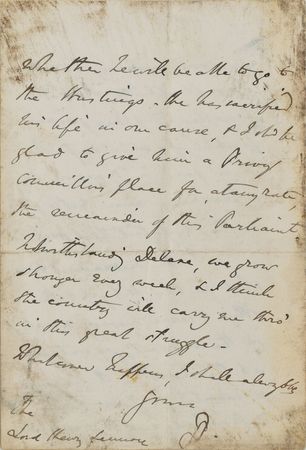 whether he will be able to go to
the Hustings. He has sacrificed
his life in our cause, & I shd be
glad to give him a Privy
Councillor's place for, at any rate,
the remainder of this Parliament
Notwithstanding Delane, we grow
stronger every week, & I think
the country will carry me thro'
in this great struggle -
Whatever happens, I shall always be
yours
D.
The
Lord Henry Lennox